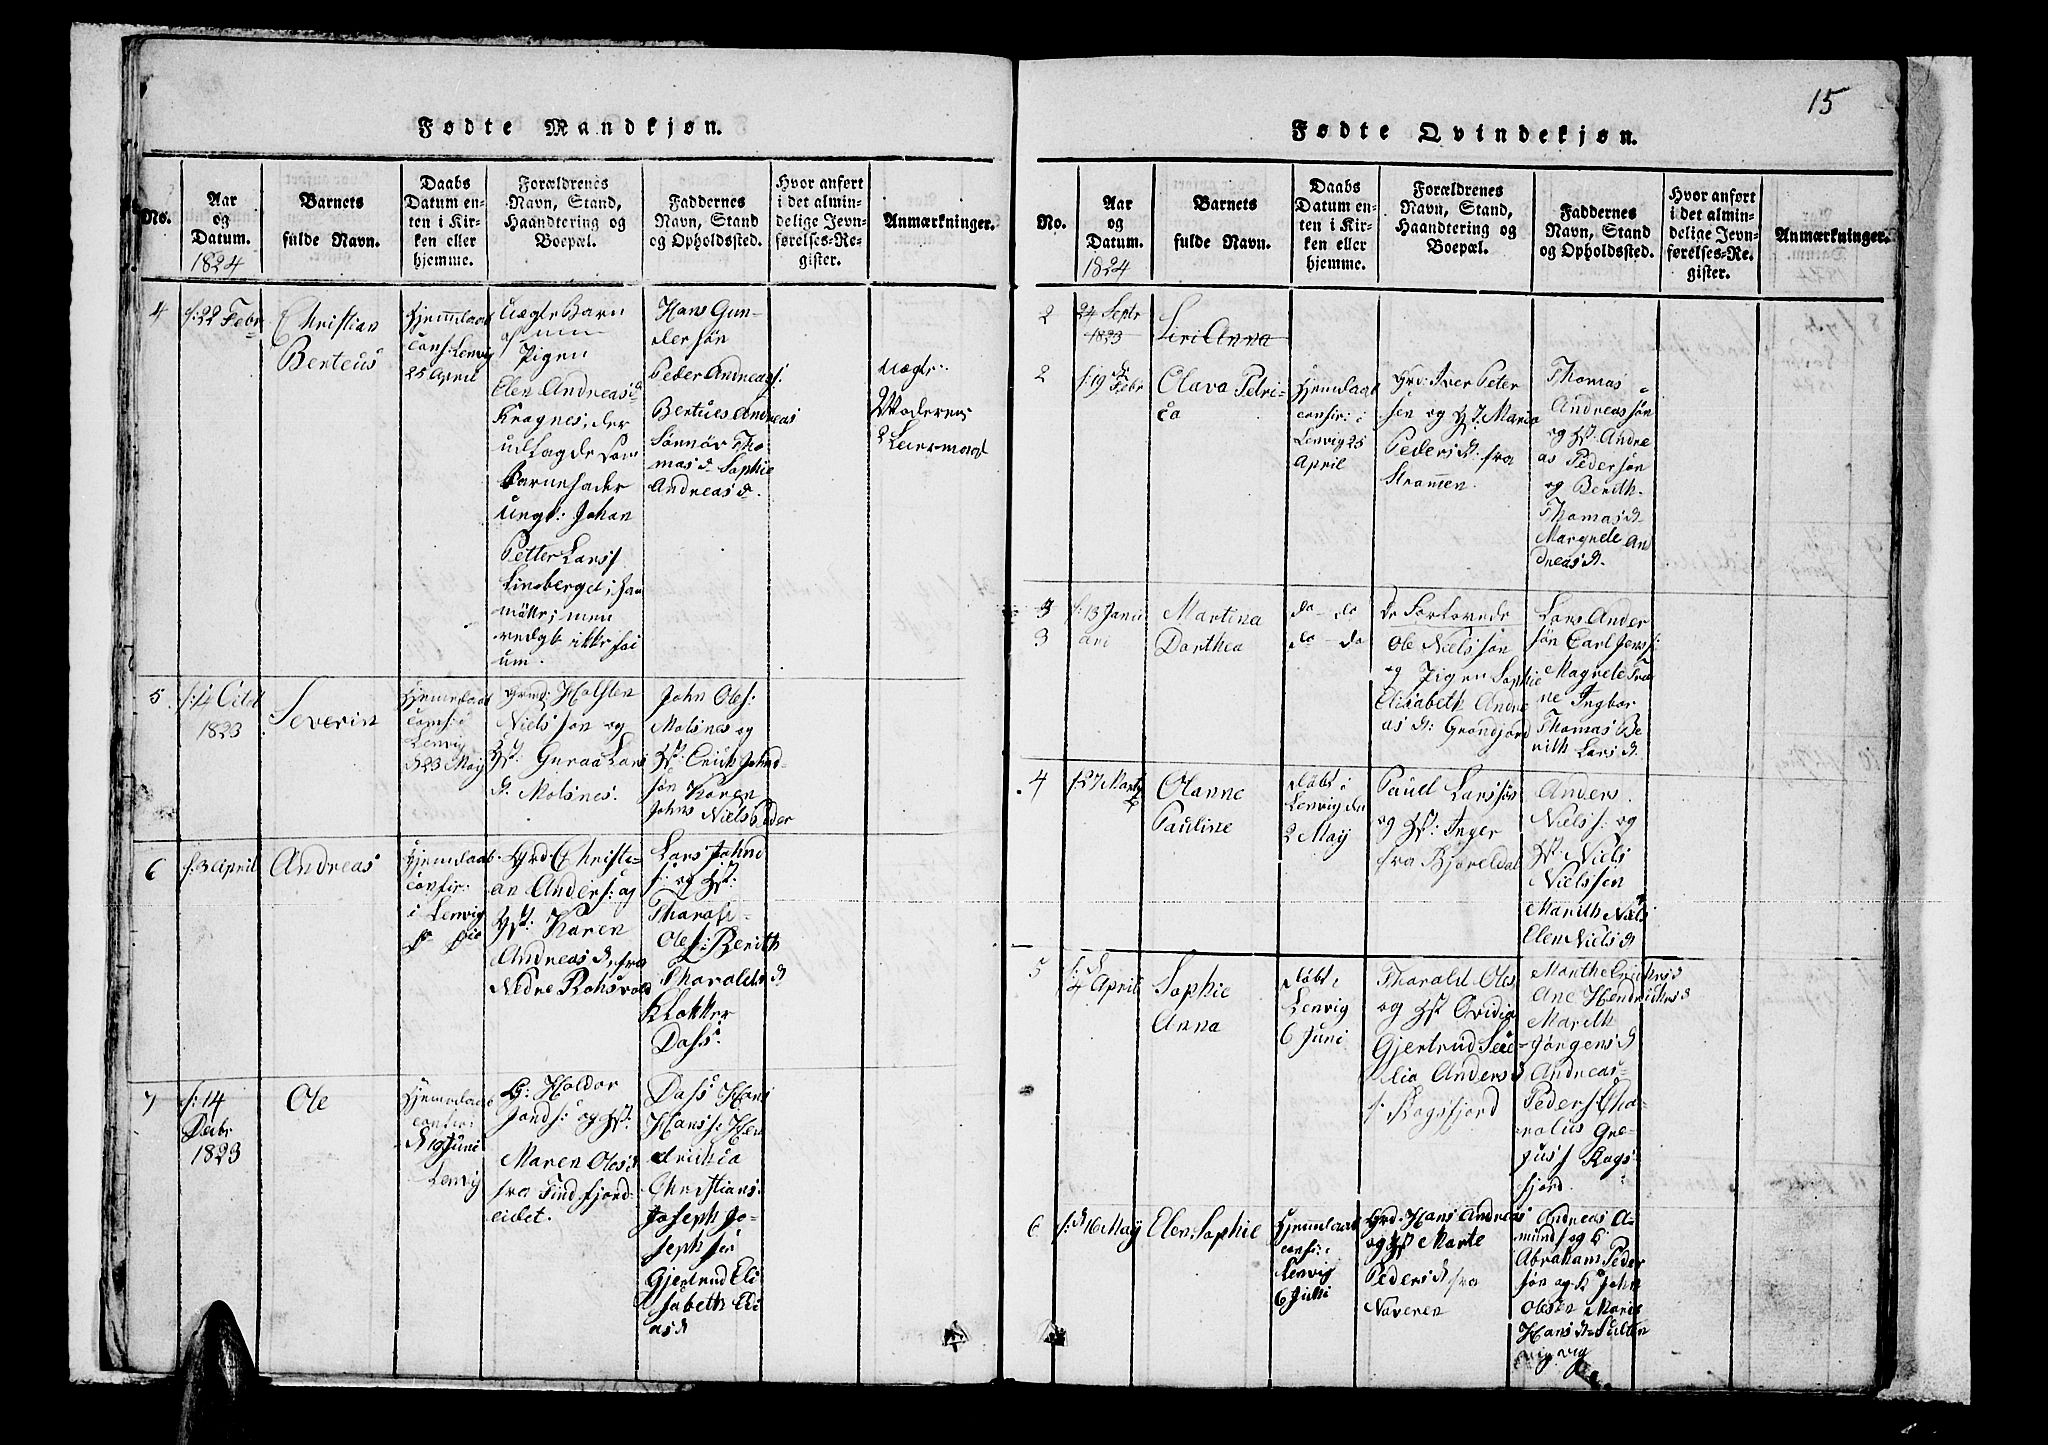 Fødte Mandkjøn.
No.
Aar
og
Datum.
1824
Barnets
fulde Navn.
Daabs
Datum en-
ten i Kir-
ken eller
hjemme.
Forældrenes
Navn, Stand,
Haandtering og
Boepæl.
Faddernes
Navn, Stand
og Opholdssted.
Hvor anført
i det almin-
delige Jevn-
førelses-Re-
gister.
Anmærkninger.
4
f: 22 Febr
Christian
Berteus
Hjemdøbt
conf: Lenvig
25 April
Uægte Barn
af
Pigen
Elen Andreas d
Kragnes, der
udlagde som
Barnefader
Ungk: Johan
Petter Lars f
Hans Gun-
dersøn
Peder Andreas f:
Bertues Andreas
Sønnøv Tho
mas d. Sophie
Andreas d.
Uægte
Moderens
2 Leiermaal
5
1823
Severin
Hjemdaab
conf: i
Lenvig
d 23 Maij
Gmd: Holsten
Niels søn og
Hst: Guraa Lars
d. Molsnes.
John Oles:
Molsnes og
Hst: Erich Johnd-
søn Karen
Johns Niels Peder
6
f: 3 April
Andreas
Hjemdaab
confir:
i Lenvig
Grd: Christi-
an Anders: og
Hst: Karen
Andreas d. fra
Nedre Rohsvold
Lars Johnd
f: og Hst:
Tharals
Oles: Berith
Tharalds d
Klokker
Dass.
7
f: 14
Decbr
1823
Ole
Hjemdaab
confir:
d 19 Juni
Lenvig
G: Haldor
Jonds: og Hst:
Maren Oles d
fra Findfjord-
eidet.
Dass Hans
Hanss: Hen
drichia
Christians.
Joseph Jo-
seph søn
Gjertrud Eli
sabeth Eli
as d
15
Fødte Qvindekjøn.
No.
Aar
og
Datum.
1824
Barnets
fulde Navn.
Daabs
Datum en-
ten i Kir-
ken eller
hjemme.
Forældrenes
Navn, Stand,
Haandtering og
Boepæl.
Faddernes
Navn, Stand
og Opholdssted.
Hvor anført
i det almin-
delige Jevn-
førelses-Re-
gister.
Anmærkninger.
2
24 Septr
1823
Siri Anna
2
f: 19 Febr
Olava Petri-
ca
Hjemdaab
confir: i
Lenvig 25
April
Grd: Iver Peter
søn og Hst: Maria
Peders d. fra
Strømmen.
Thomas
Andreas søn
og Hst: Andre
as Pedersøn
og Berith
Thomas d
Margrete An
dreas d.
3
3
f: 13 Janu
ari
Martina
Dorthea
do - do
do - do
De Forlovede
Ole Niels søn
og Pigen Sophie
Elisabeth Andre
as d: Grandjord
Lars Ander
søn Carl Jens f:
Magrete Tri
ne Ingbor
Thomas Be
rith Lars d.
4
f: 27 Marty
Olanne
Pauline
døbt i
Lenvig den
2 Maij
Paul Larssøn
og Hst: Inger
fra Bjoreldal
Anders
Niels f: og
Hst: Niels
Nielssen
Marith Niels
Elen Niels d
5
f: d
4 April
Sophie
Anna
døbt i
Lenvig
6 Juni
Tharald Oles
og Hst Ovidia
Gjertrud Seie-
lia Anders d
f: Rogsfjord
Marthe Erichs d
Ane Hendrichs d
Marith
Jørgens d
Andreas
Peders f: Tha-
ralus Gre-
gus f Rogs-
fjord.
6
f: d 16 Maij
Elen Sophie
Hjemdaab
confir:
Lenvig
6 Juni
Grd: Hans Andreas
og Hst Marte
Peders d fra
Naveren
Andreas A-
munds og H
Abraham Peder
søn og H John
Olesen Marie
Hans d Sulten
vig